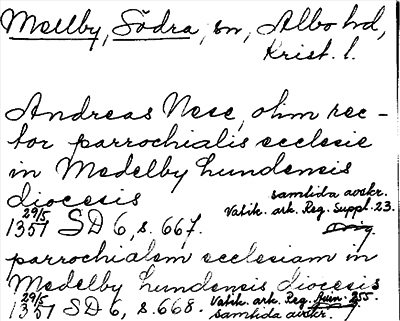 Mellby, Södra, sn, Albo hd,
Krist. l.
Andreas Nese, olim rec-
tor parrochialis ecclesie
in Medelby Lundensis
diocesis samtida avskr.
29/5 1351 SD 6, s. 667. Vatik. ark. Reg. Suppl. 23.
Orig.
parrochialem ecclesiam in
Medelby Lundensis diocesis
29/5 1351 SD 6, s. 668. Vatik. ark. Reg. Avin. 255.
samtida avskr.